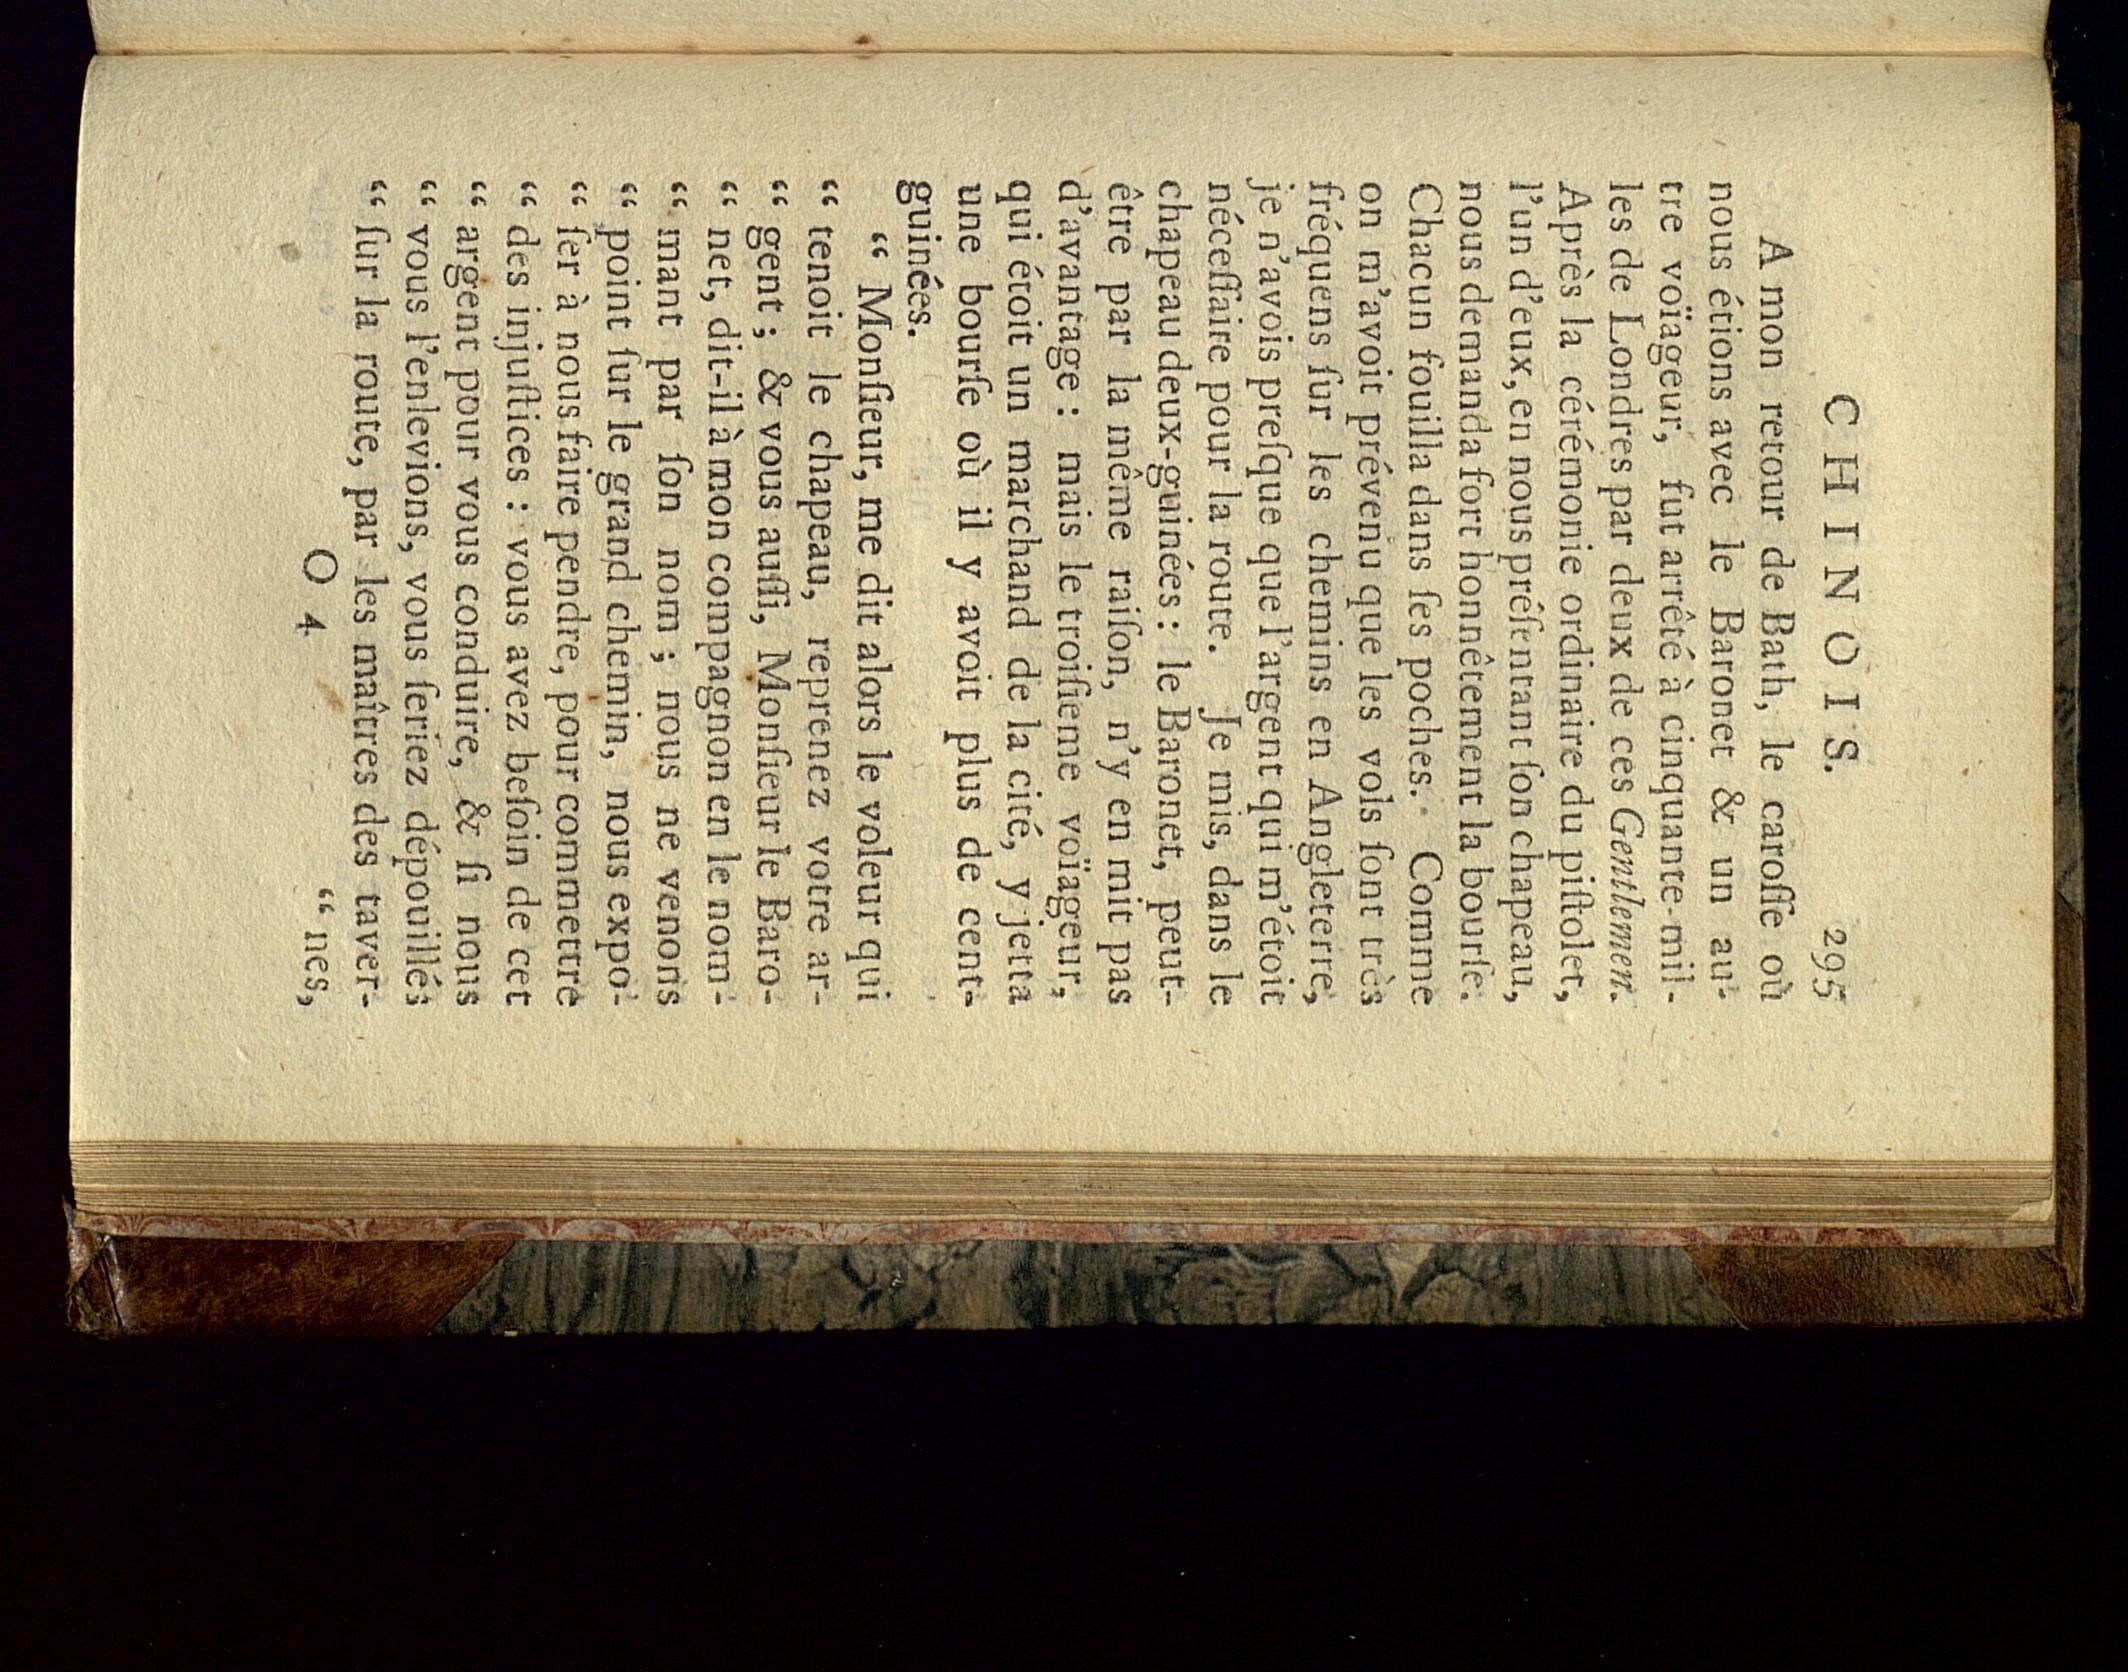 CHINOIS. 295
A mon retour de Bath, le caroſſe où
nous étions avec le Baronet & un au-
tre voïageur, fut arrêté à cinquante-mil-
les de Londres par deux de ces Gentlemen.
Après la cérémonie ordinaire du piſtolet,
l'un d'eux, en nous préſentant ſon chapeau,
nous demanda fort honnêtement la bourſe.
Chacun fouilla dans ſes poches. Comme
on m'avoit prévenu que les vols ſont très
fréquens ſur les chemins en Angleterre,
je n'avois preſque que l'argent qui m'étoit
néceſſaire pour la route. Je mis, dans le
chapeau deux-guinées : le Baronet, peut-
être par la même raiſon, n'y en mit pas
d'avantage : mais le troiſieme voïageur,
qui étoit un marchand de la cité, y jetta
une bourſe où il y avoit plus de cent-
guinées.
“ Monſieur, me dit alors le voleur qui
“ tenoit le chapeau, reprenez votre ar-
“ gent ; & vous auſſi, Monſieur le Baro-
“ net, dit-il à mon compagnon en le nom-
“ mant par ſon nom ; nous ne venons
“ point ſur le grand chemin, nous expo-
“ ſer à nous faire pendre, pour commettre
“ des injuſtices : vous avez beſoin de cet
“ argent pour vous conduire, & ſi nous
“ vous l'enlevions, vous ſeriez dépouillés
“ ſur la route, par les maîtres des taver-
O 4 “ nes,